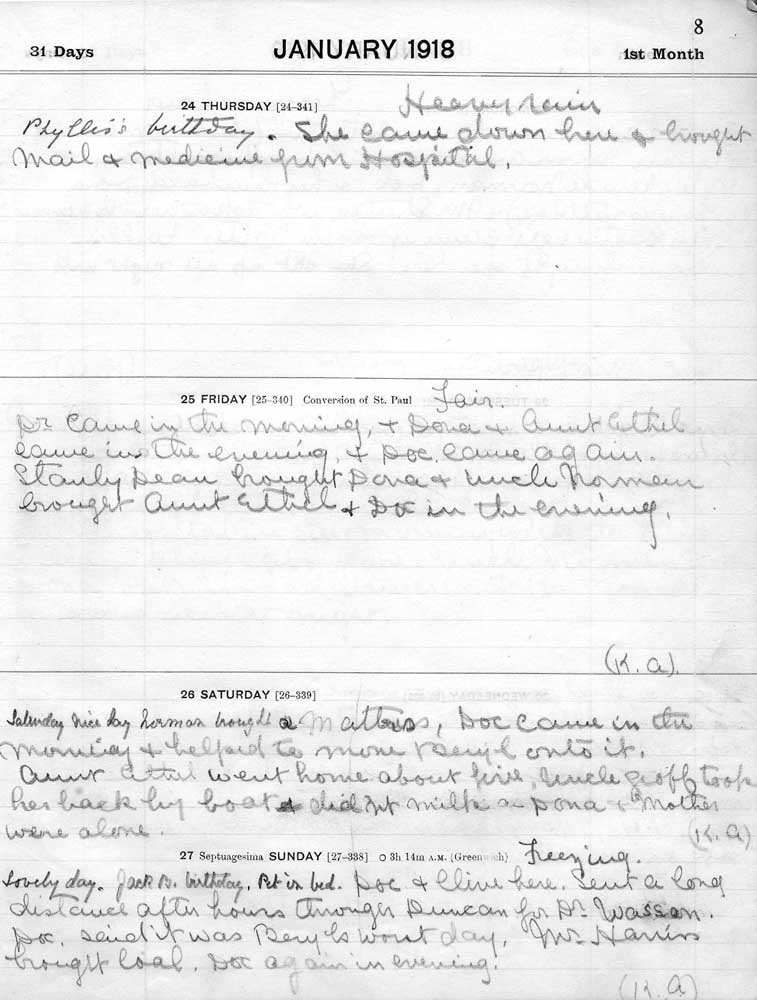 8
31 Days JANUARY 1918 1st Month
24 THURSDAY [24-341] Heavy rain
Phyllis's birthday. She came down here & brought
Mail & medicine from Hospital.
25 FRIDAY [25-340] Conversion of St. Paul Fair.
Dr. Came in the morning, & Dona & Aunt Ethel
came in the evening, & Doc. came again.
Stanly Dean brought Dona & Uncle Norman
brought Aunt Ethel & Doc in the evening.
(K. A).
26 SATURDAY [26-339]
Saturday Nice day Norman brought a Mattress, Doc came in the
morning & helped to move Beryl onto it.
Aunt Ethel went home about five, Uncle Geoff took
her back by boat & didn't milk Dona & Mother
were alone. (K. A)
27 Septuagesima SUNDAY [27-338] O 3h 14m A.M. (Greenwich) Freezing.
Lovely day. Jack B. birthday, Pat in bed. Doc & Clive here. Sent a long
distance after hours through Duncan for Dr. Wasson.
Doc. said it was Beryls worst day, Mr. Harris
brought coal. Doc again in evening.
(K. A)